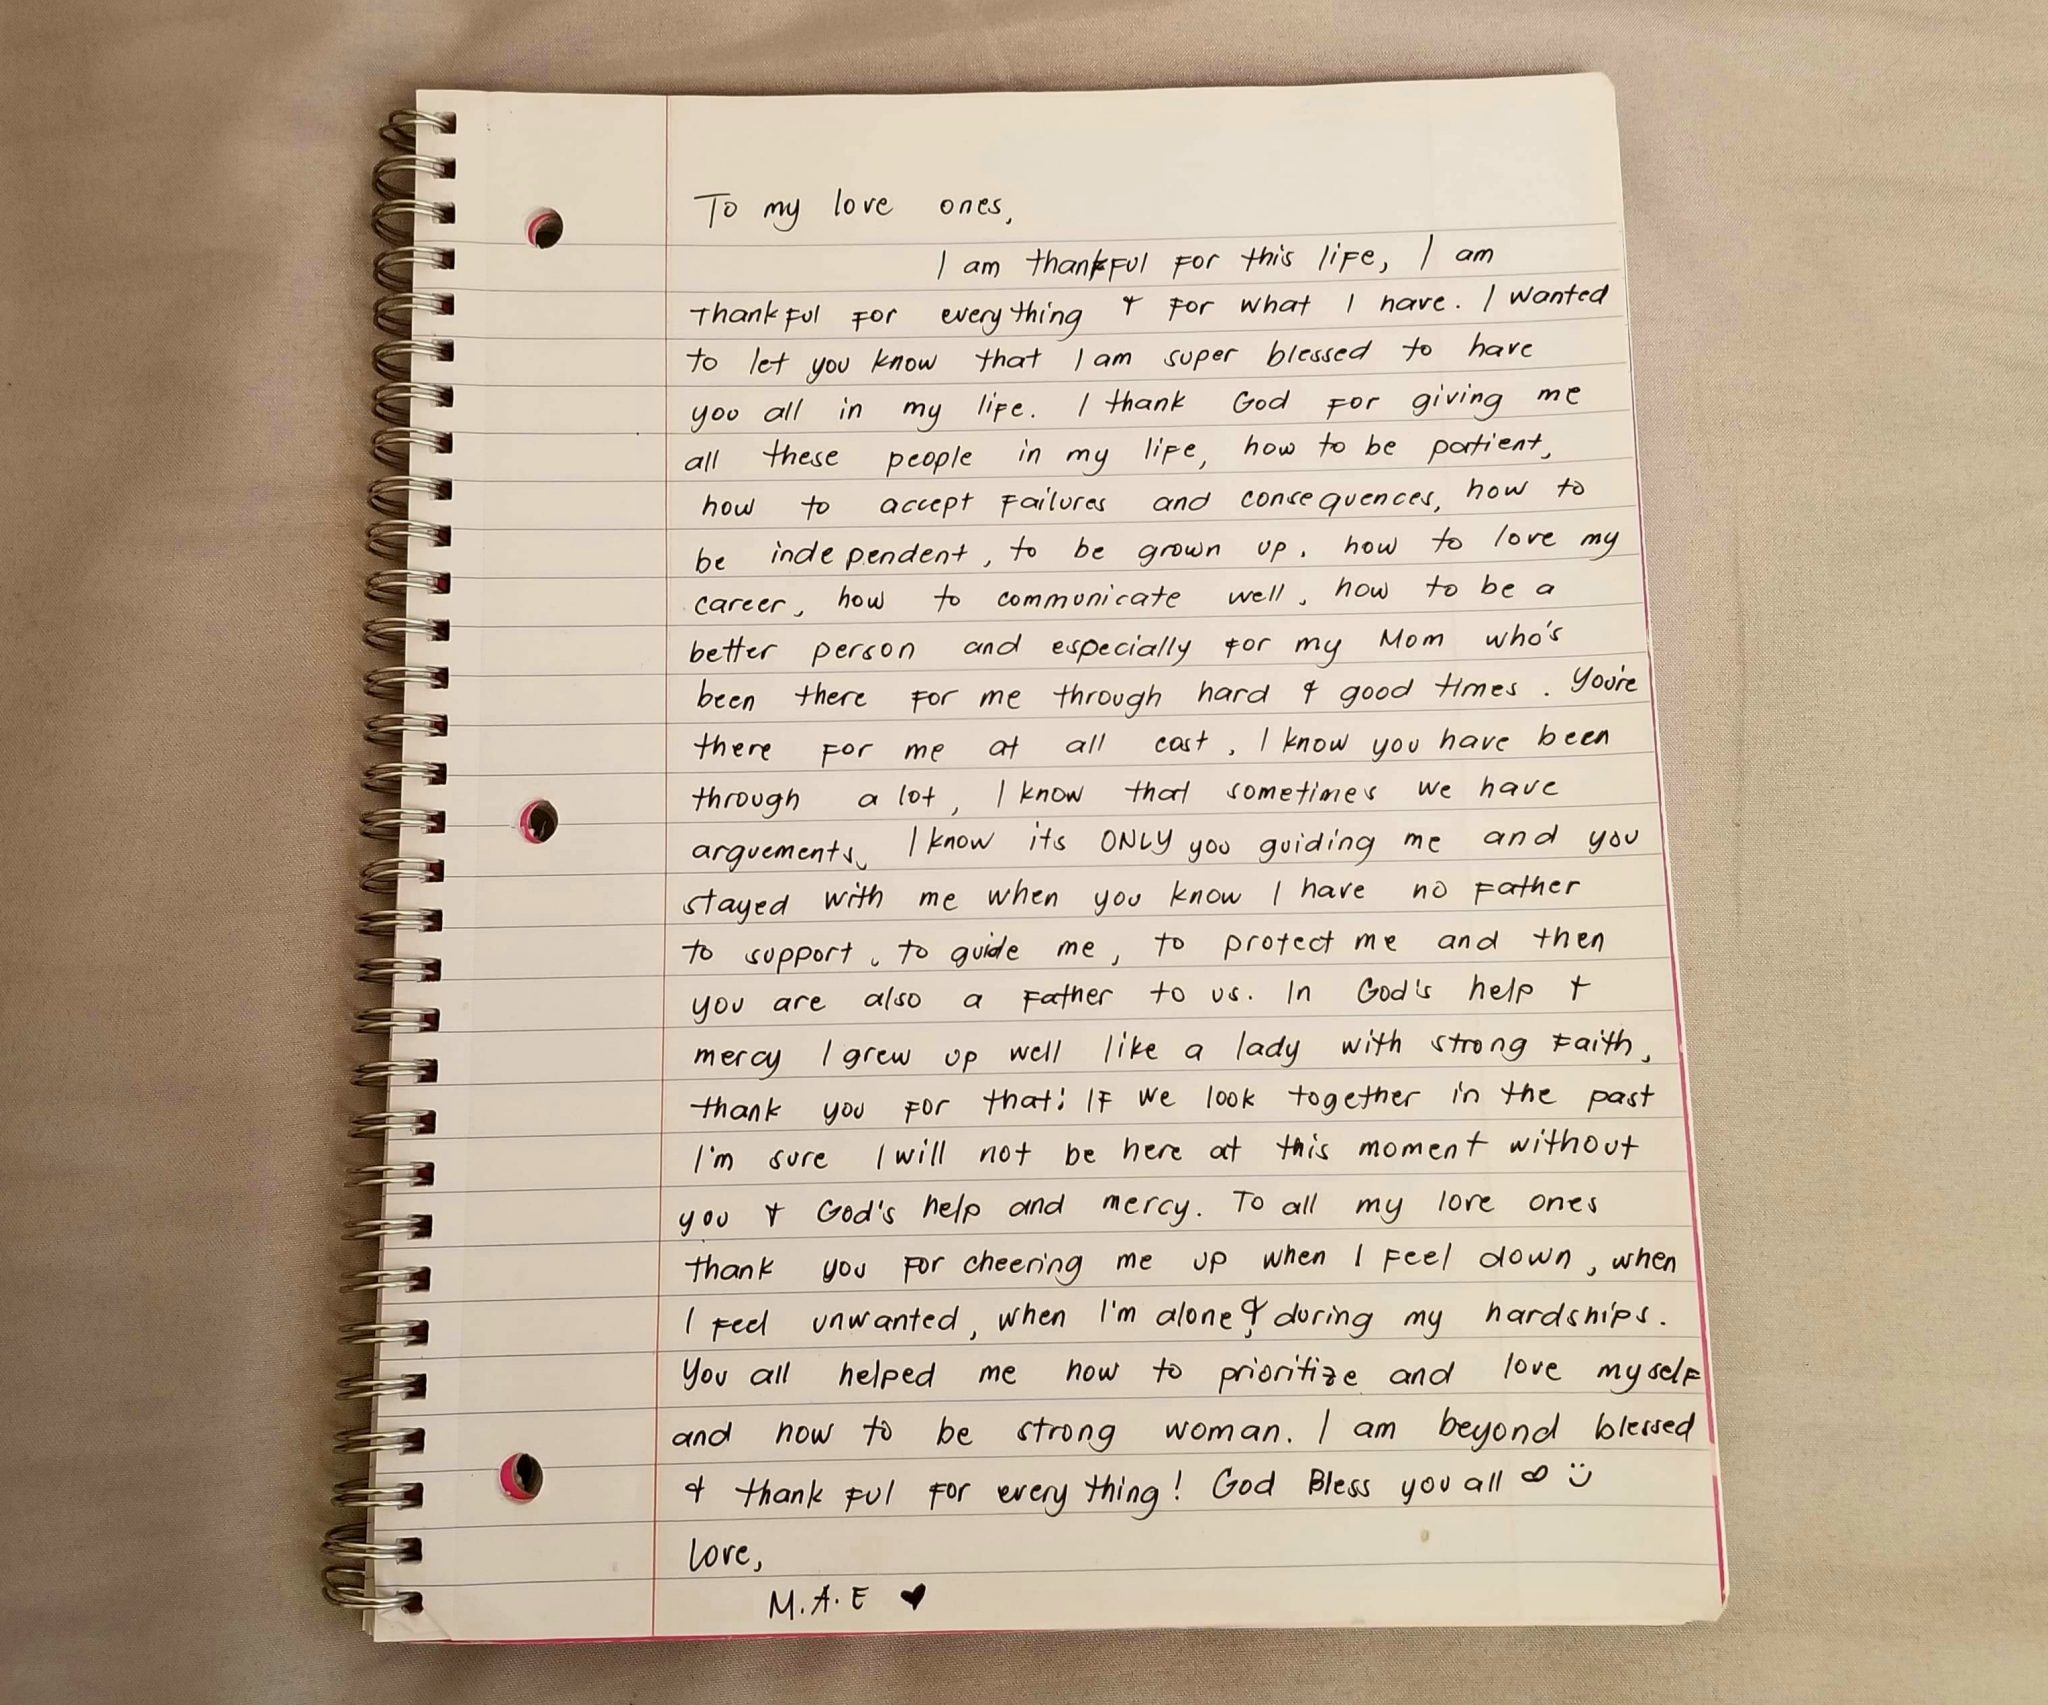 To my love ones,
I am thankful for this life, I am
thankful for everything & for what I have. I wanted
to let you know that I am super blessed to have
you all in my life. I thank God for giving me
all these people in my life, how to be patient,
how to accept failures and consequences, how to
be independent, to be grown up, how to love my
career, how to communicate well, how to be a
better person and especially for my Mom who's
been there for me through hard & good times. You're
there for me at all cost, I know you have been
through a lot, I know that sometimes we have
arguements, I know its ONLY you guiding me and you
stayed with me when you know I have no father
to support, to guide me, to protect me and then
you are also a father to us. In God's help &
mercy I grew up well like a lady with strong faith,
thank you for that! If we look together in the past
I'm sure I will not be here at this moment without
you & God's help and mercy. To all my love ones
thank you for cheering me up when I feel down, when
I feel unwanted, when I'm alone & during my hardships.
You all helped me how to prioritize and love myself
and how to be strong woman. I am beyond blessed
& thankful for everything! God Bless you all ∞ ☺
Love,
M.A.E ♥